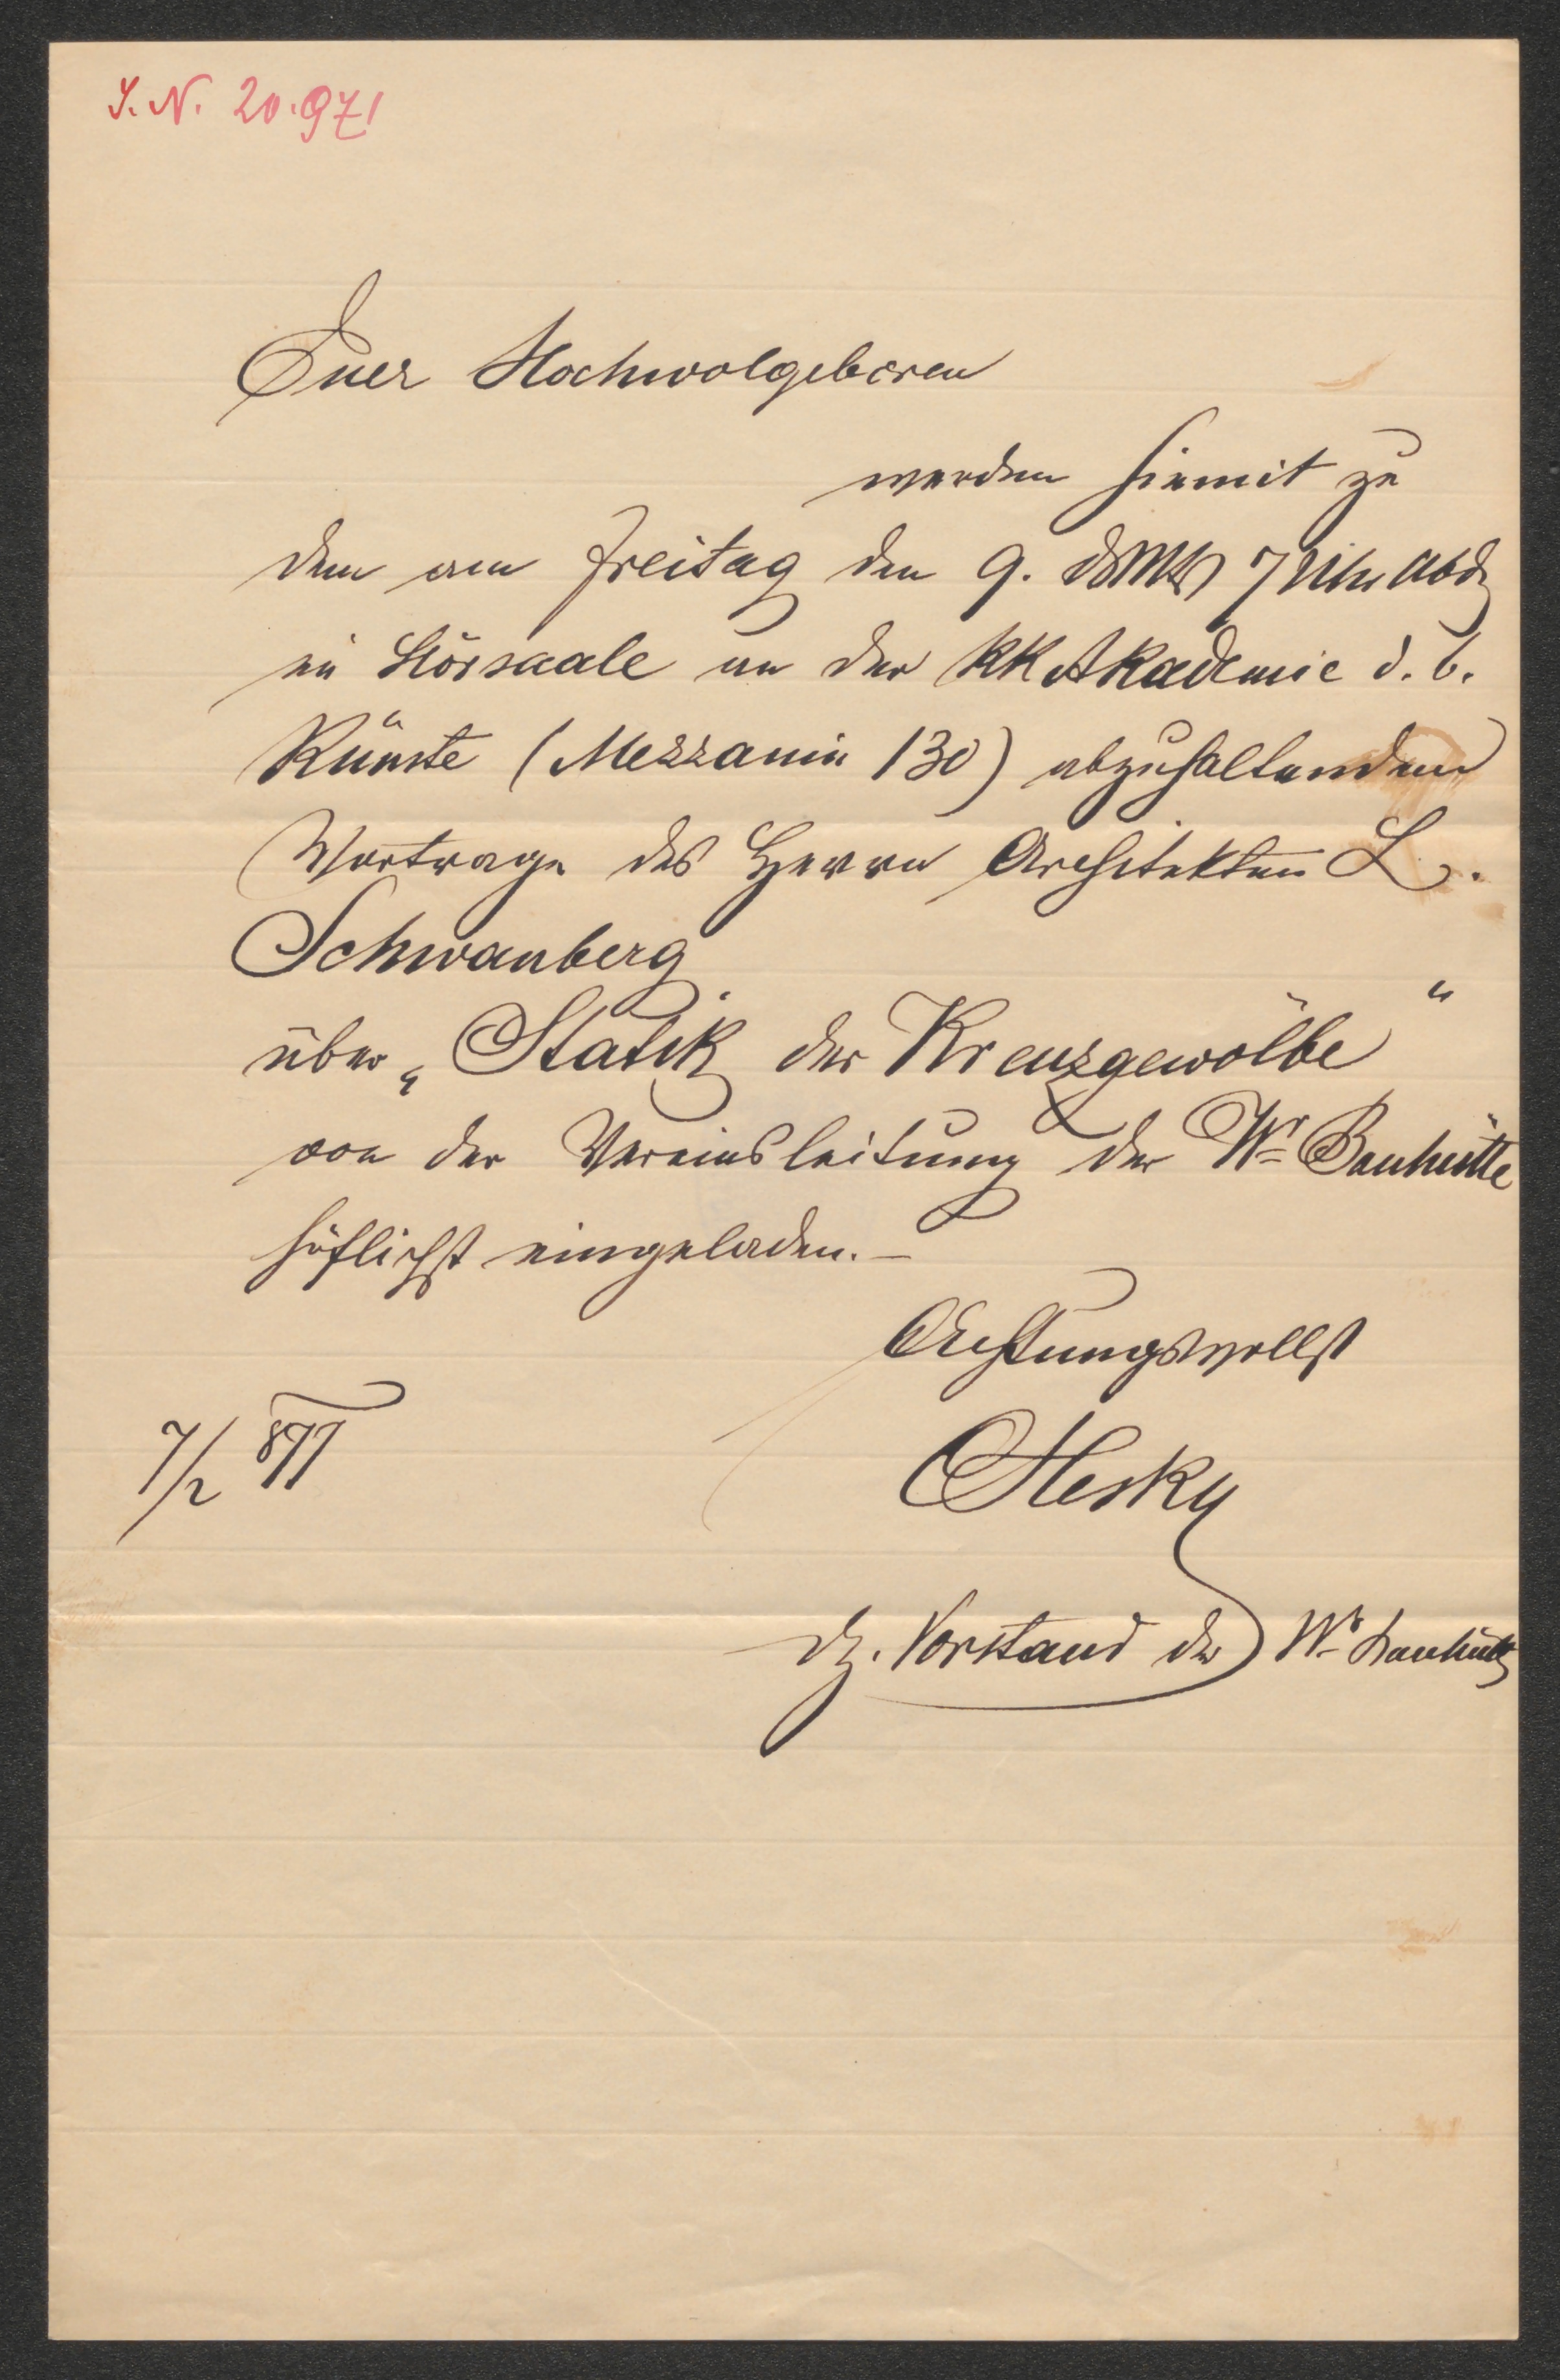 I. N. 20.971
Euer Hochwolgeboren
werden hiemit zu
dem am Freitag den 9. dsMts 7 Uhr Abds
im Hörsaale an der KK Akademie d. b.
Künste (Mezzanin 130) abzuhaltenden
Vortrage des Herrn Architekten L.
Schwanberg
über „Statik der Kreuzgewölbe“
von der Vereinsleitung der Wr Bauhütte
höflichst eingeladen. –
Achtungsvollst
Hesky
7/2 877
dz. Vorstand der Wr Bauhütte